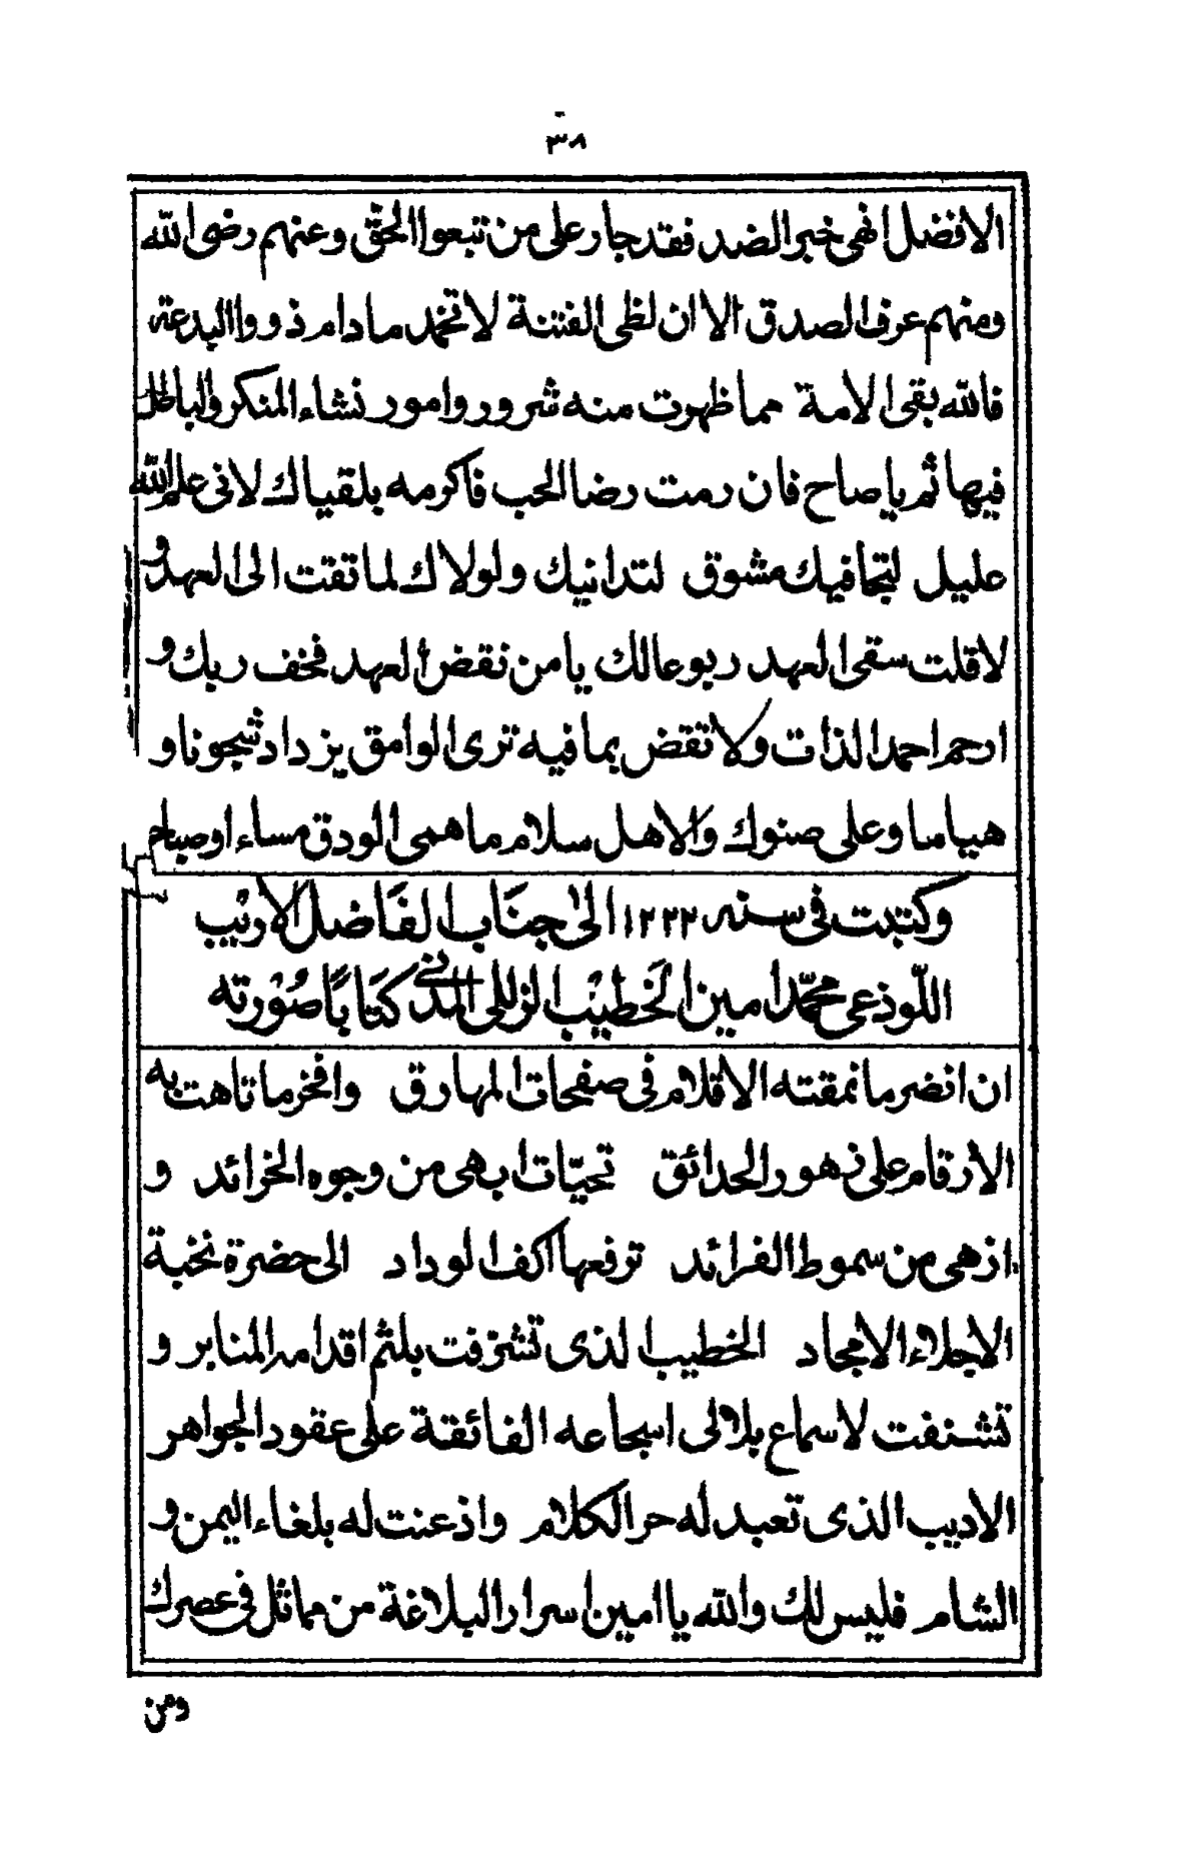 ٣٨
الافضل انهى خبر الضد فقد جار على من تبعوا الحق وعنهم رضى الله
ومنهم عرف الصدق الا ان لظى الفتنة لا تخمد مادام ذووا البدعة
فالله يقى الامة مما ظهرت منه شرور وامور نشاء المنكر والباطل
فيها ثم يا صاح فان رمت رضا الحب فاكرمه بلقياك لانى علم الله
عليل لتجافيك مشوق لتدانيك ولولاك لما تقت الى العهد و
لا قلت سقى العهد ربوعا لك يا من نقض العهد فخف ربك و
ارحم احمد الذات ولا تقض بما فيه ترى الوامق يزداد شجونا و
هياما وعلى صنوك والاهل سلام ما همى الودق مساء او صباح
وكتبت فى سنه ١٢٢٢ الى جناب الفاضل الأريب
اللّوذعى محمّد امين الخطيب الزللى المدنى كتابًا صُورته
ان انضر ما نمقته الاقلام فى صفحات المهارق وافخر ما تاهت به
الأرقام على زهور الحدائق تحيّات ابهى من وجوه الخرائد و
ازهى من سموط الفرائد ترفعها اكف الوداد الى حضرة نخبة
الاجلاء الامجاد الخطيب الذى تشرفت بلثم اقدامه المنابر و
تشنفت لاسماع بلالى اسجاعه الفائقة على عقود الجواهر
الاديب الذى تعبد له حر الكلام واذعنت له بلغاء اليمن و
الشام فليس لك والله يا امين اسرار البلاغة من مماثل فى عصرك
ومن